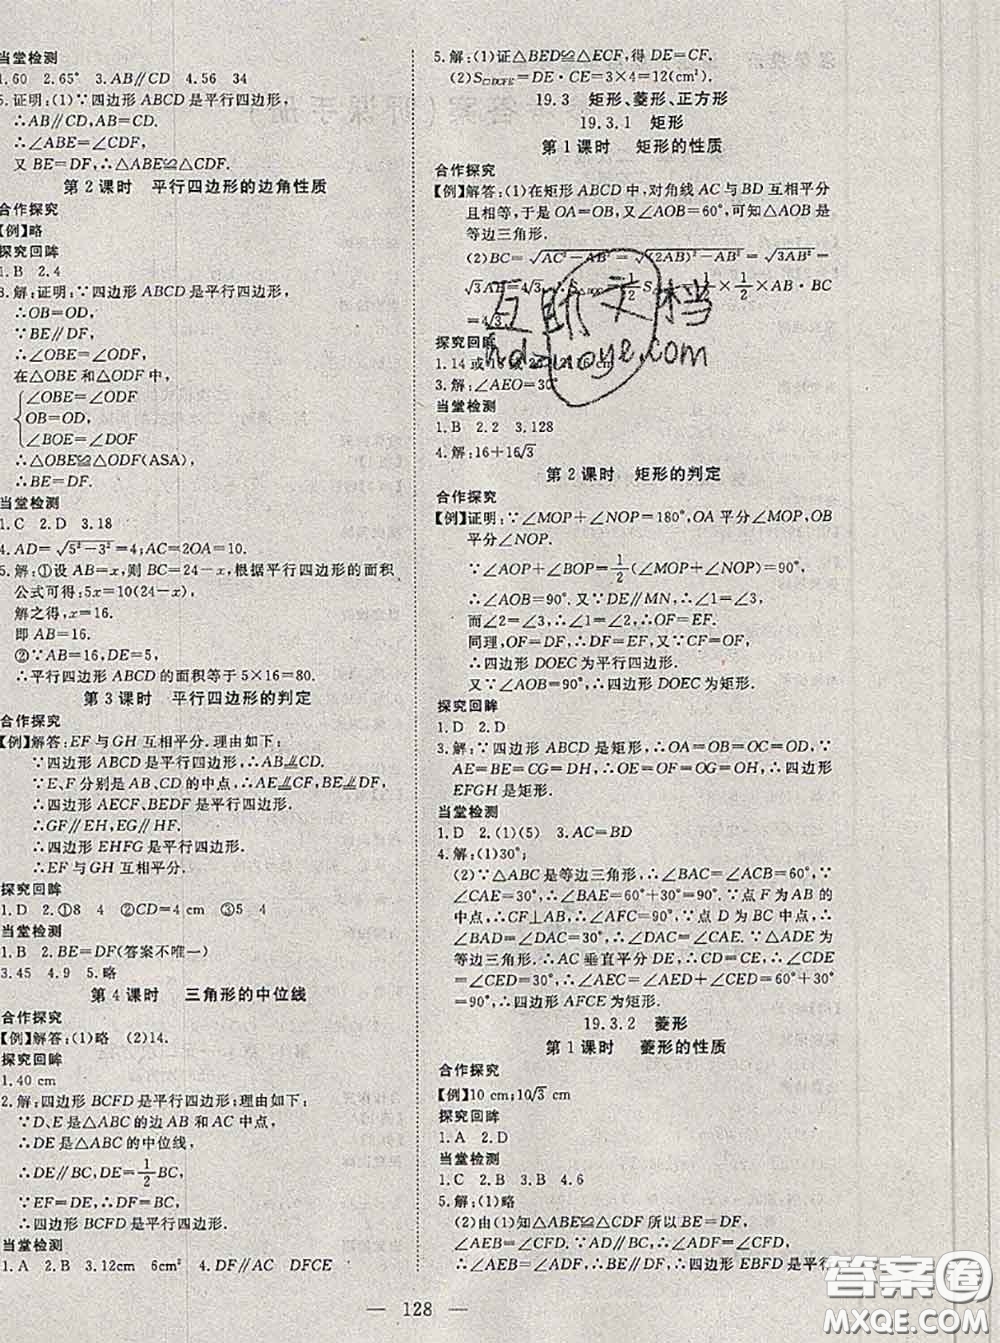 当堂检测
1.60　2.65°　3.AB∥CD　4.56　34
5.证明:(1)∵四边形ABCD是平行四边形,
∴AB∥CD,AB=CD.
∴∠ABE=∠CDF.
又BE=DF,∴△ABE≌△CDF.
第2课时　平行四边形的边角性质
合作探究
【例】略
探究回眸
1.B　2.4
3.解:证明:∵四边形ABCD是平行四边形,
∴OB=OD,
∵BE∥DF,
∴∠OBE=∠ODF,
在△OBE和△ODF中,
∠OBE=∠ODF
OB=OD,
∠BOE=∠DOF
∴△OBE≌△ODF(ASA).
∴BE=DF.
当堂检测
1.C　2.D　3.18
4.AD=√5²-3²=4;AC=2OA=10.
5.解:①设AB=x,则BC=24-x,根据平行四边形的面积
公式可得:5x=10(24-x),
解之得,x=16.
即AB=16.
②∵AB=16,DE=5,
∴平行四边形ABCD的面积等于5×16=80.
第3课时　平行四边形的判定
合作探究
【例】解答:EF与GH互相平分.理由如下:
∵四边形ABCD是平行四边形,∴AB∥CD.
∵E、F分别是AB、CD的中点,∴AE∥CF,BE∥DF,
∴四边形AECF、BEDF是平行四边形.
∴GF∥EH,EG∥HF.
∴四边形EHFG是平行四边形.
∴EF与GH互相平分.
探究回眸
1.D　2.①8　4　②CD=4 cm　③5　4
当堂检测
1.B　2.BE=DF(答案不唯一)
3.45　4.9　5.略
第4课时　三角形的中位线
合作探究
【例】解答:(1)略　(2)14.
探究回眸
1.40 cm
2.解:四边形BCFD是平行四边形;理由如下:
∵D、E是△ABC的中点,
∴DE是△ABC的中位线,
∴DE∥BC,DE=1/2BC,
∵EF=DE,∴DF=BC,
∴四边形BCFD是平行四边形.
当堂检测
1.A　2.B　3.12cm　6cm²　4.DF∥AC　DFCE
5.解:(1)证△BED≌△ECF,得DE=CF.
(2)S□DCFE=DE·CE=3×4=12(cm²).
19.3　矩形、菱形、正方形
19.3.1　矩形
第1课时　矩形的性质
合作探究
【例】解答:(1)在矩形ABCD中,对角线AC与BD互相平分
且相等,于是OA=OB,又∠AOB=60°,可知△AOB是
等边三角形.
(2)BC=√AC²-AB²=√(2AB)²-AB²=√3AB²=
√3AB=4√3 ∴S△BOC=1/2S =1/2×1/2×AB·BC
=4√3
互助文档
hdzuoye.com
探究回眸
1.14或16
3.解:∠AEO=30°
当堂检测
1.B　2.2　3.128
4.解:16+16√3
第2课时　矩形的判定
合作探究
【例】证明:∵∠MOP+∠NOP=180°,OA平分∠MOP,OB
平分∠NOP.
∵∠AOP+∠BOP=1/2(∠MOP+∠NOP)=90°,
∴∠AOB=90°.又∵DE∥MN,∴∠1=∠3,
而∠2=∠3,∴∠1=∠2,∴OF=EF.
同理,OF=DF,∴DF=EF,又∵CF=OF,
∴四边形DOEC为平行四边形.
又∵∠AOB=90°,∴四边形DOEC为矩形.
探究回眸
1.D　2.D
3.解:∵四边形ABCD是矩形,∴OA=OB=OC=OD,又∵
AE=BE=CG=DH,∴OE=OF=OG=OH,∴四边形
EFGH是矩形.
当堂检测
1.D　2.(1)(5)　3.AC=BD
4.解:(1)30°;
(2)∵△ABC是等边三角形,∴∠BAC=∠ACB=60°,∵
∠CAE=30°,∴∠BAE=60°+30°=90°.∵点F为AB的
中点,∴CF⊥AB,∴∠AFC=90°,∵点D为AC的中点,
∠ACF=30°=∠CAE.∴∠ACF=∠CAE.∵△ADE为
等边三角形.∴AC垂直平分DE,∴CD=CE,∴∠ACE=
∠CED=30°,∴∠AEC=∠AED+∠CED=60°+30°=
90°,∴四边形AFCE为矩形.
19.3.2　菱形
第1课时　菱形的性质
合作探究
【例】10 cm;10√3 cm
探究回眸
1.A　2.D
当堂检测
1.C　2.B　3.B　4.6
5.解:(1)略
(2)由(1)知△ABE≌△CDF所以BE=DF,
∠AEB=∠CFD.又∵BD=DF,∴DE=DF,
∴∠AEB=∠CFD,∴AE∥DF,∴四边形DEBF是平行
— 128 —
答案圈
MXQE.COM